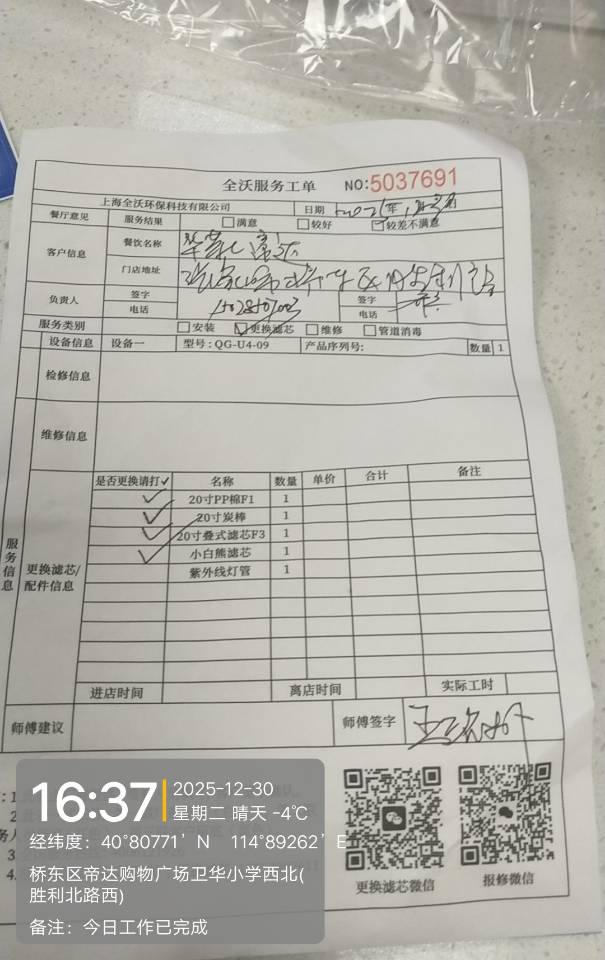 全沃服务工单 NO:5037691
上海全沃环保科技有限公司 日期
餐厅意见 服务结果 满意 较好 较差不满意
客户信息 餐饮名称
门店地址
负责人 签字 签字
电话 电话
服务类别 安装 更换滤芯 维修 管道消毒
设备信息 设备一 型号:QG-U4-09 产品序列号: 数量 1
检修信息
维修信息
服务信息
更换滤芯/配件信息
是否更换请打✓ 名称 数量 单价 合计 备注
✓ 20寸PP棉F1 1
✓ 20寸炭棒 1
✓ 20寸叠式滤芯F3 1
✓ 小白熊滤芯 1
紫外线灯管 1
进店时间 离店时间 实际工时
师傅建议 师傅签字
更换滤芯微信 报修微信
16:37 2025-12-30
星期二 晴天 -4℃
经纬度：40°80771′N 114°89262′E
桥东区帝达购物广场卫华小学西北(
胜利北路西)
备注：今日工作已完成